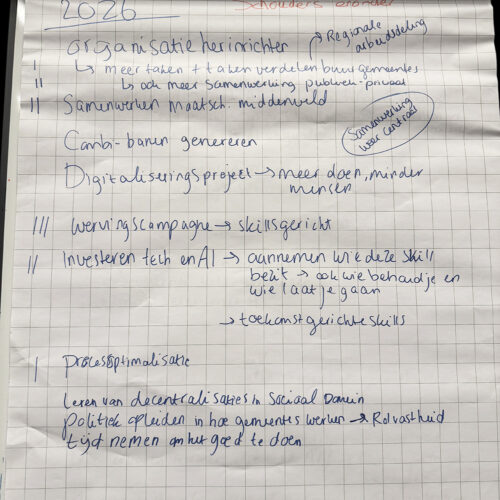 2026
Schouders eronder
organisatie herinrichter
Regionale
arbeidsdeling
| ↳ meer taken + taken verdelen buurgemeentes
|| ↳ ook meer samenwerking publiek-privaat
|| Samenwerken maatsch. middenveld
Samenwerking
weer centraal
Combi-banen genereren
Digitaliseringsproject → meer doen, minder
mensen
||| wervingscampagne → skillsgericht
|| Investeren tech en AI → aannemen wie deze skill
bezit → ook wie behoud je en
wie laat je gaan
→ toekomstgerichte skills
| Procesoptimalisatie
Leren van decentralisaties in Sociaal Domein
Politiek opleiden in hoe gemeentes werken → Rolvastheid
tijd nemen om het goed te doen